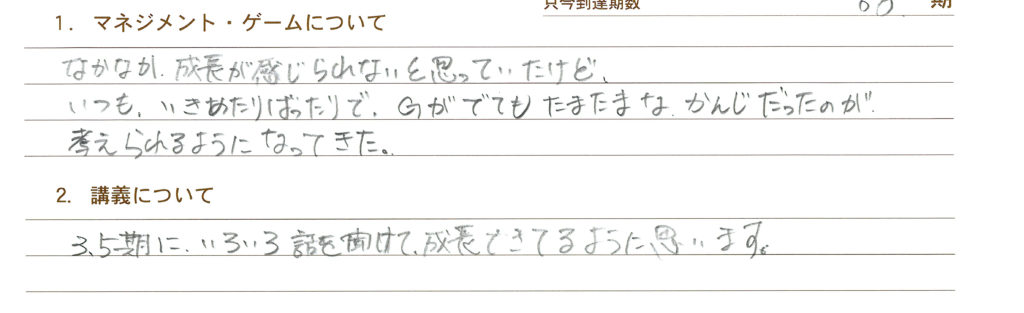 只今到達期数 60. 期
1. マネジメント・ゲームについて
なかなか、成長が感じられないと思っていたけど、
いつも、いきあたりばったりで、Gがでてもたまたまな、かんじだったのが、
考えられるようになってきた。
2. 講義について
3、5期に、いろいろ話を聞けて、成長できてるように思います。